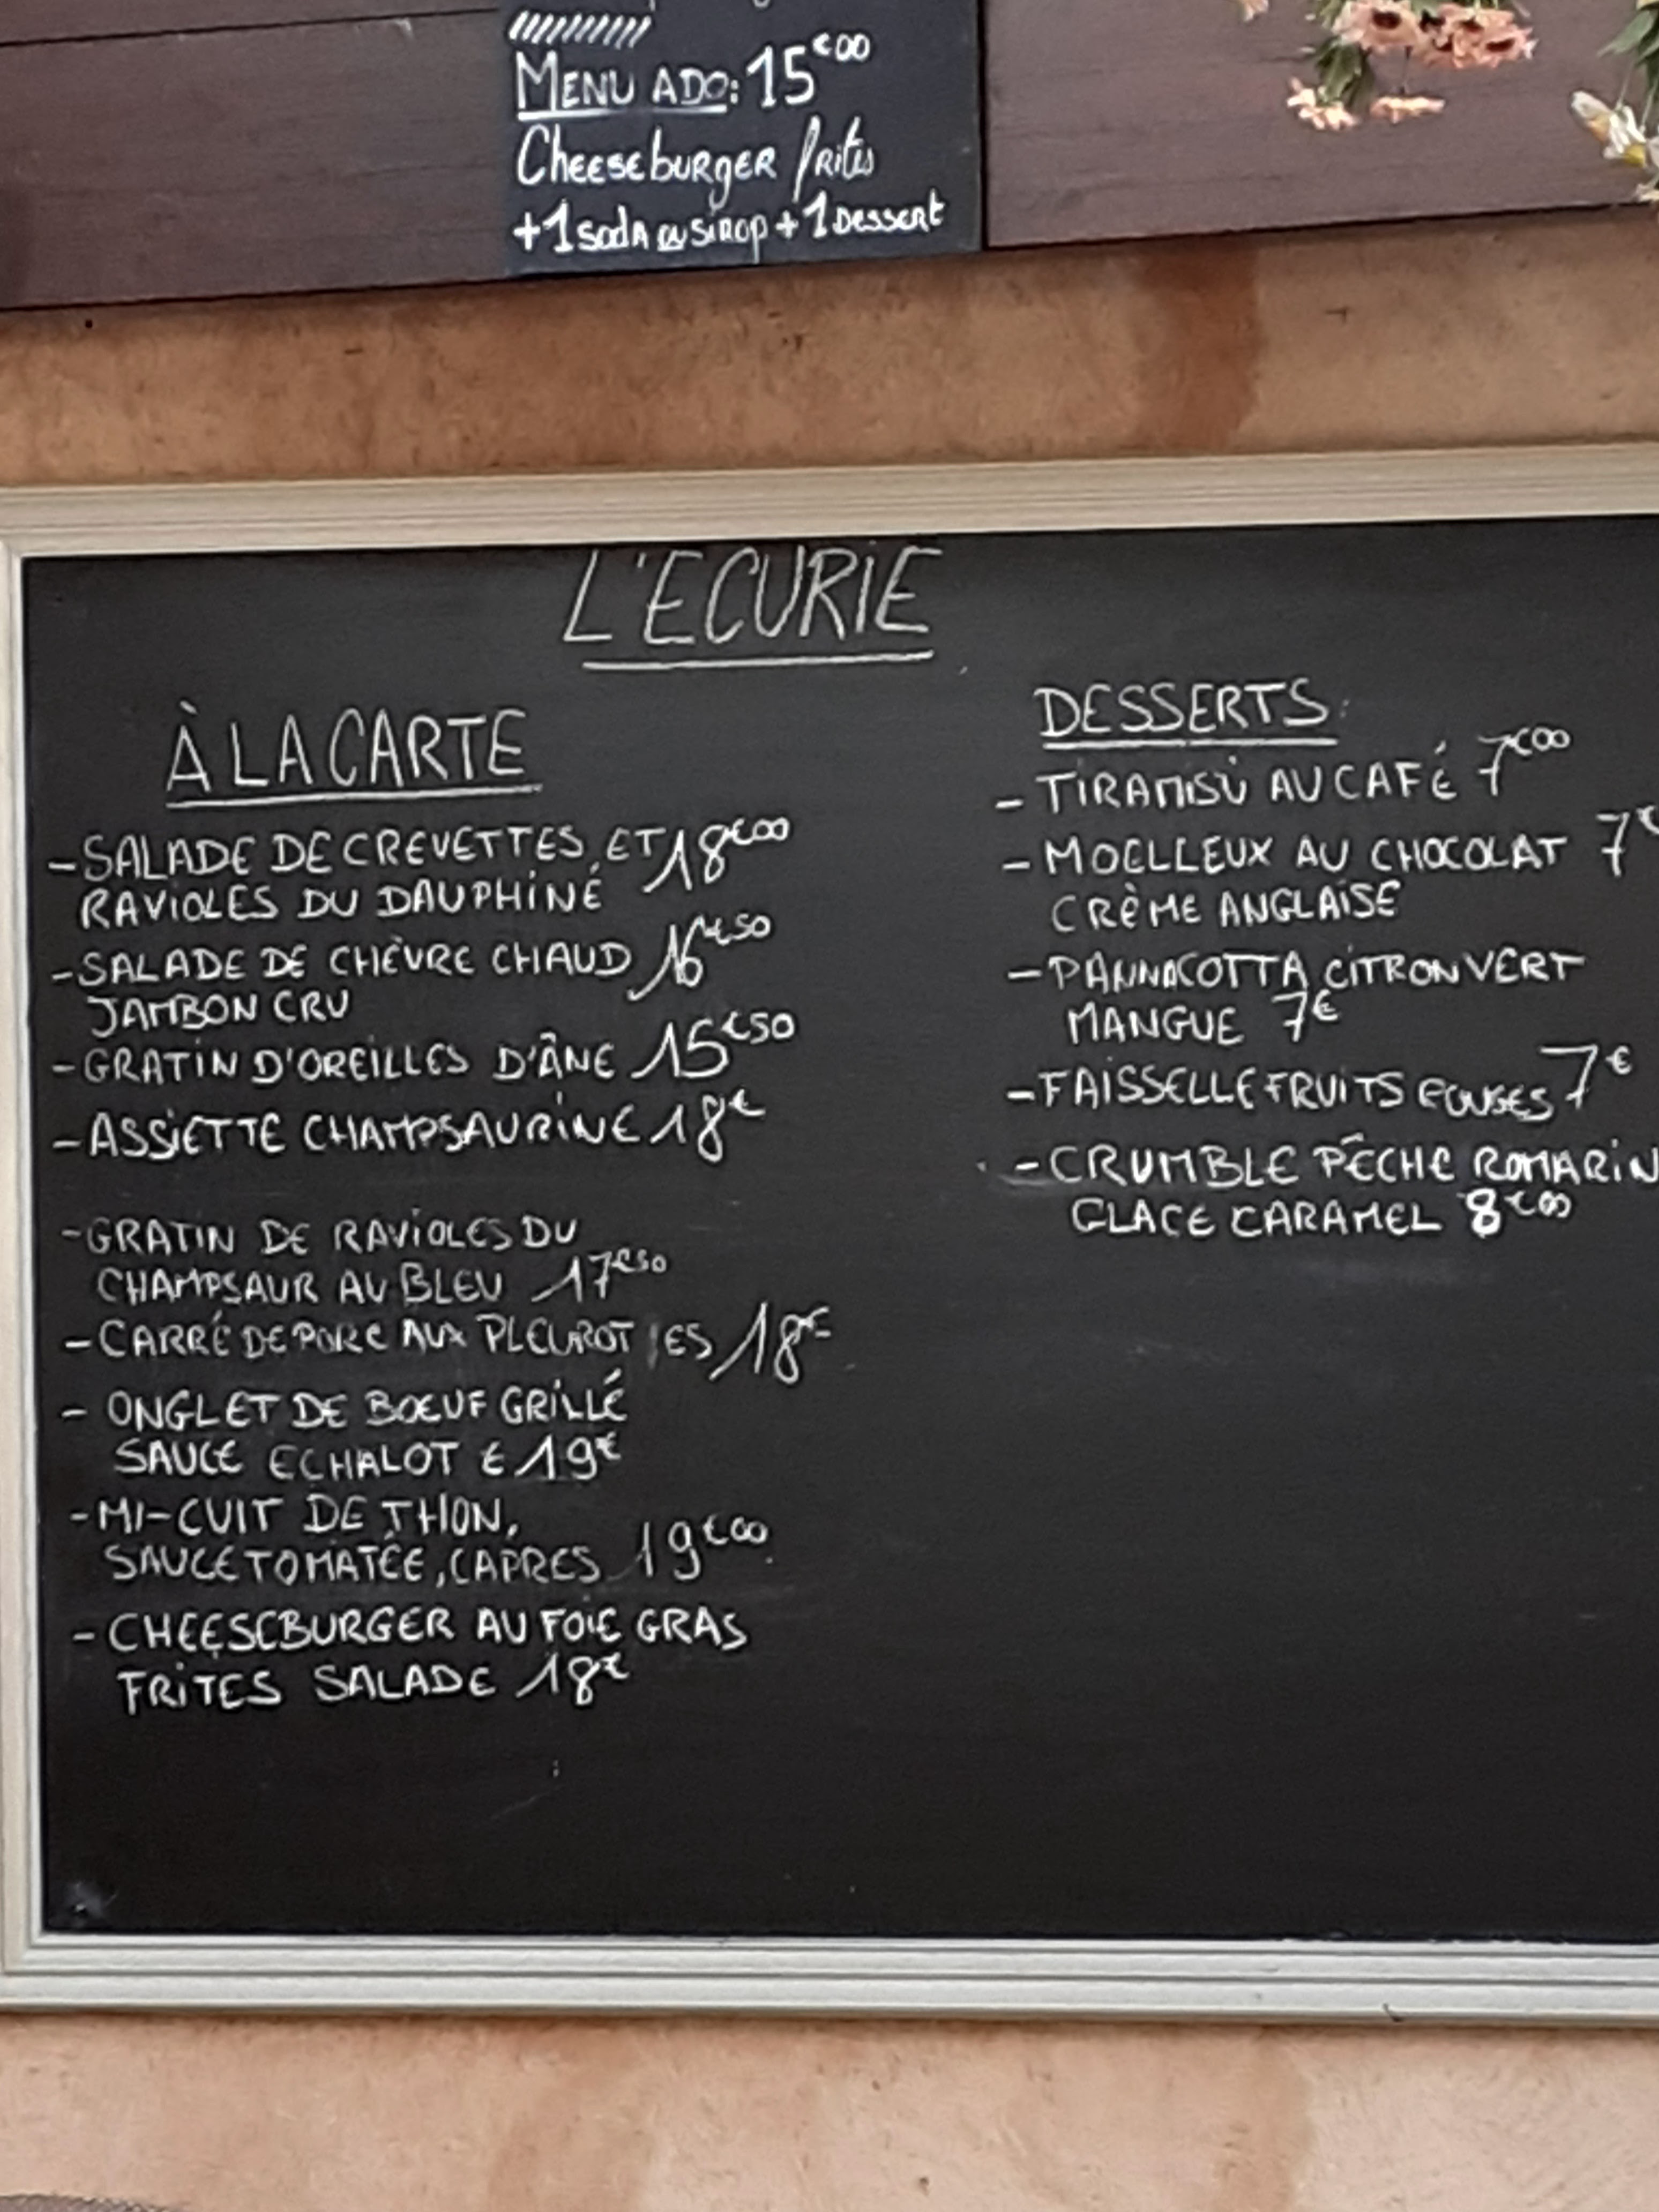 MENU ADO: 15€00
Cheeseburger frites
+1 soda ou sirop + 1 Dessert
L'ECURIE
À LA CARTE
- SALADE DE CREVETTES ET 18€00
RAVIOLES DU DAUPHINÉ
- SALADE DE CHÈVRE CHAUD 16€50
JAMBON CRU
- GRATIN D'OREILLES D'ÂNE 15€50
- ASSIETTE CHAMPSAURINE 18€
- GRATIN DE RAVIOLES DU
CHAMPSAUR AU BLEU 17€50
- CARRÉ DE PORC AUX PLEUROTTES 18€
- ONGLET DE BOEUF GRILLÉ
SAUCE ECHALOTE 19€
- MI-CUIT DE THON,
SAUCE TOMATÉE, CAPRES 19€00
- CHEESEBURGER AU FOIE GRAS
FRITES SALADE 18€
DESSERTS:
- TIRAMISÙ AU CAFÉ 7€00
- MOELLEUX AU CHOCOLAT 7€
CRÈME ANGLAISE
- PANNACOTTA CITRON VERT
MANGUE 7€
- FAISSELLE FRUITS ROUGES 7€
- CRUMBLE PÊCHE ROMARIN
GLACE CARAMEL 8€00